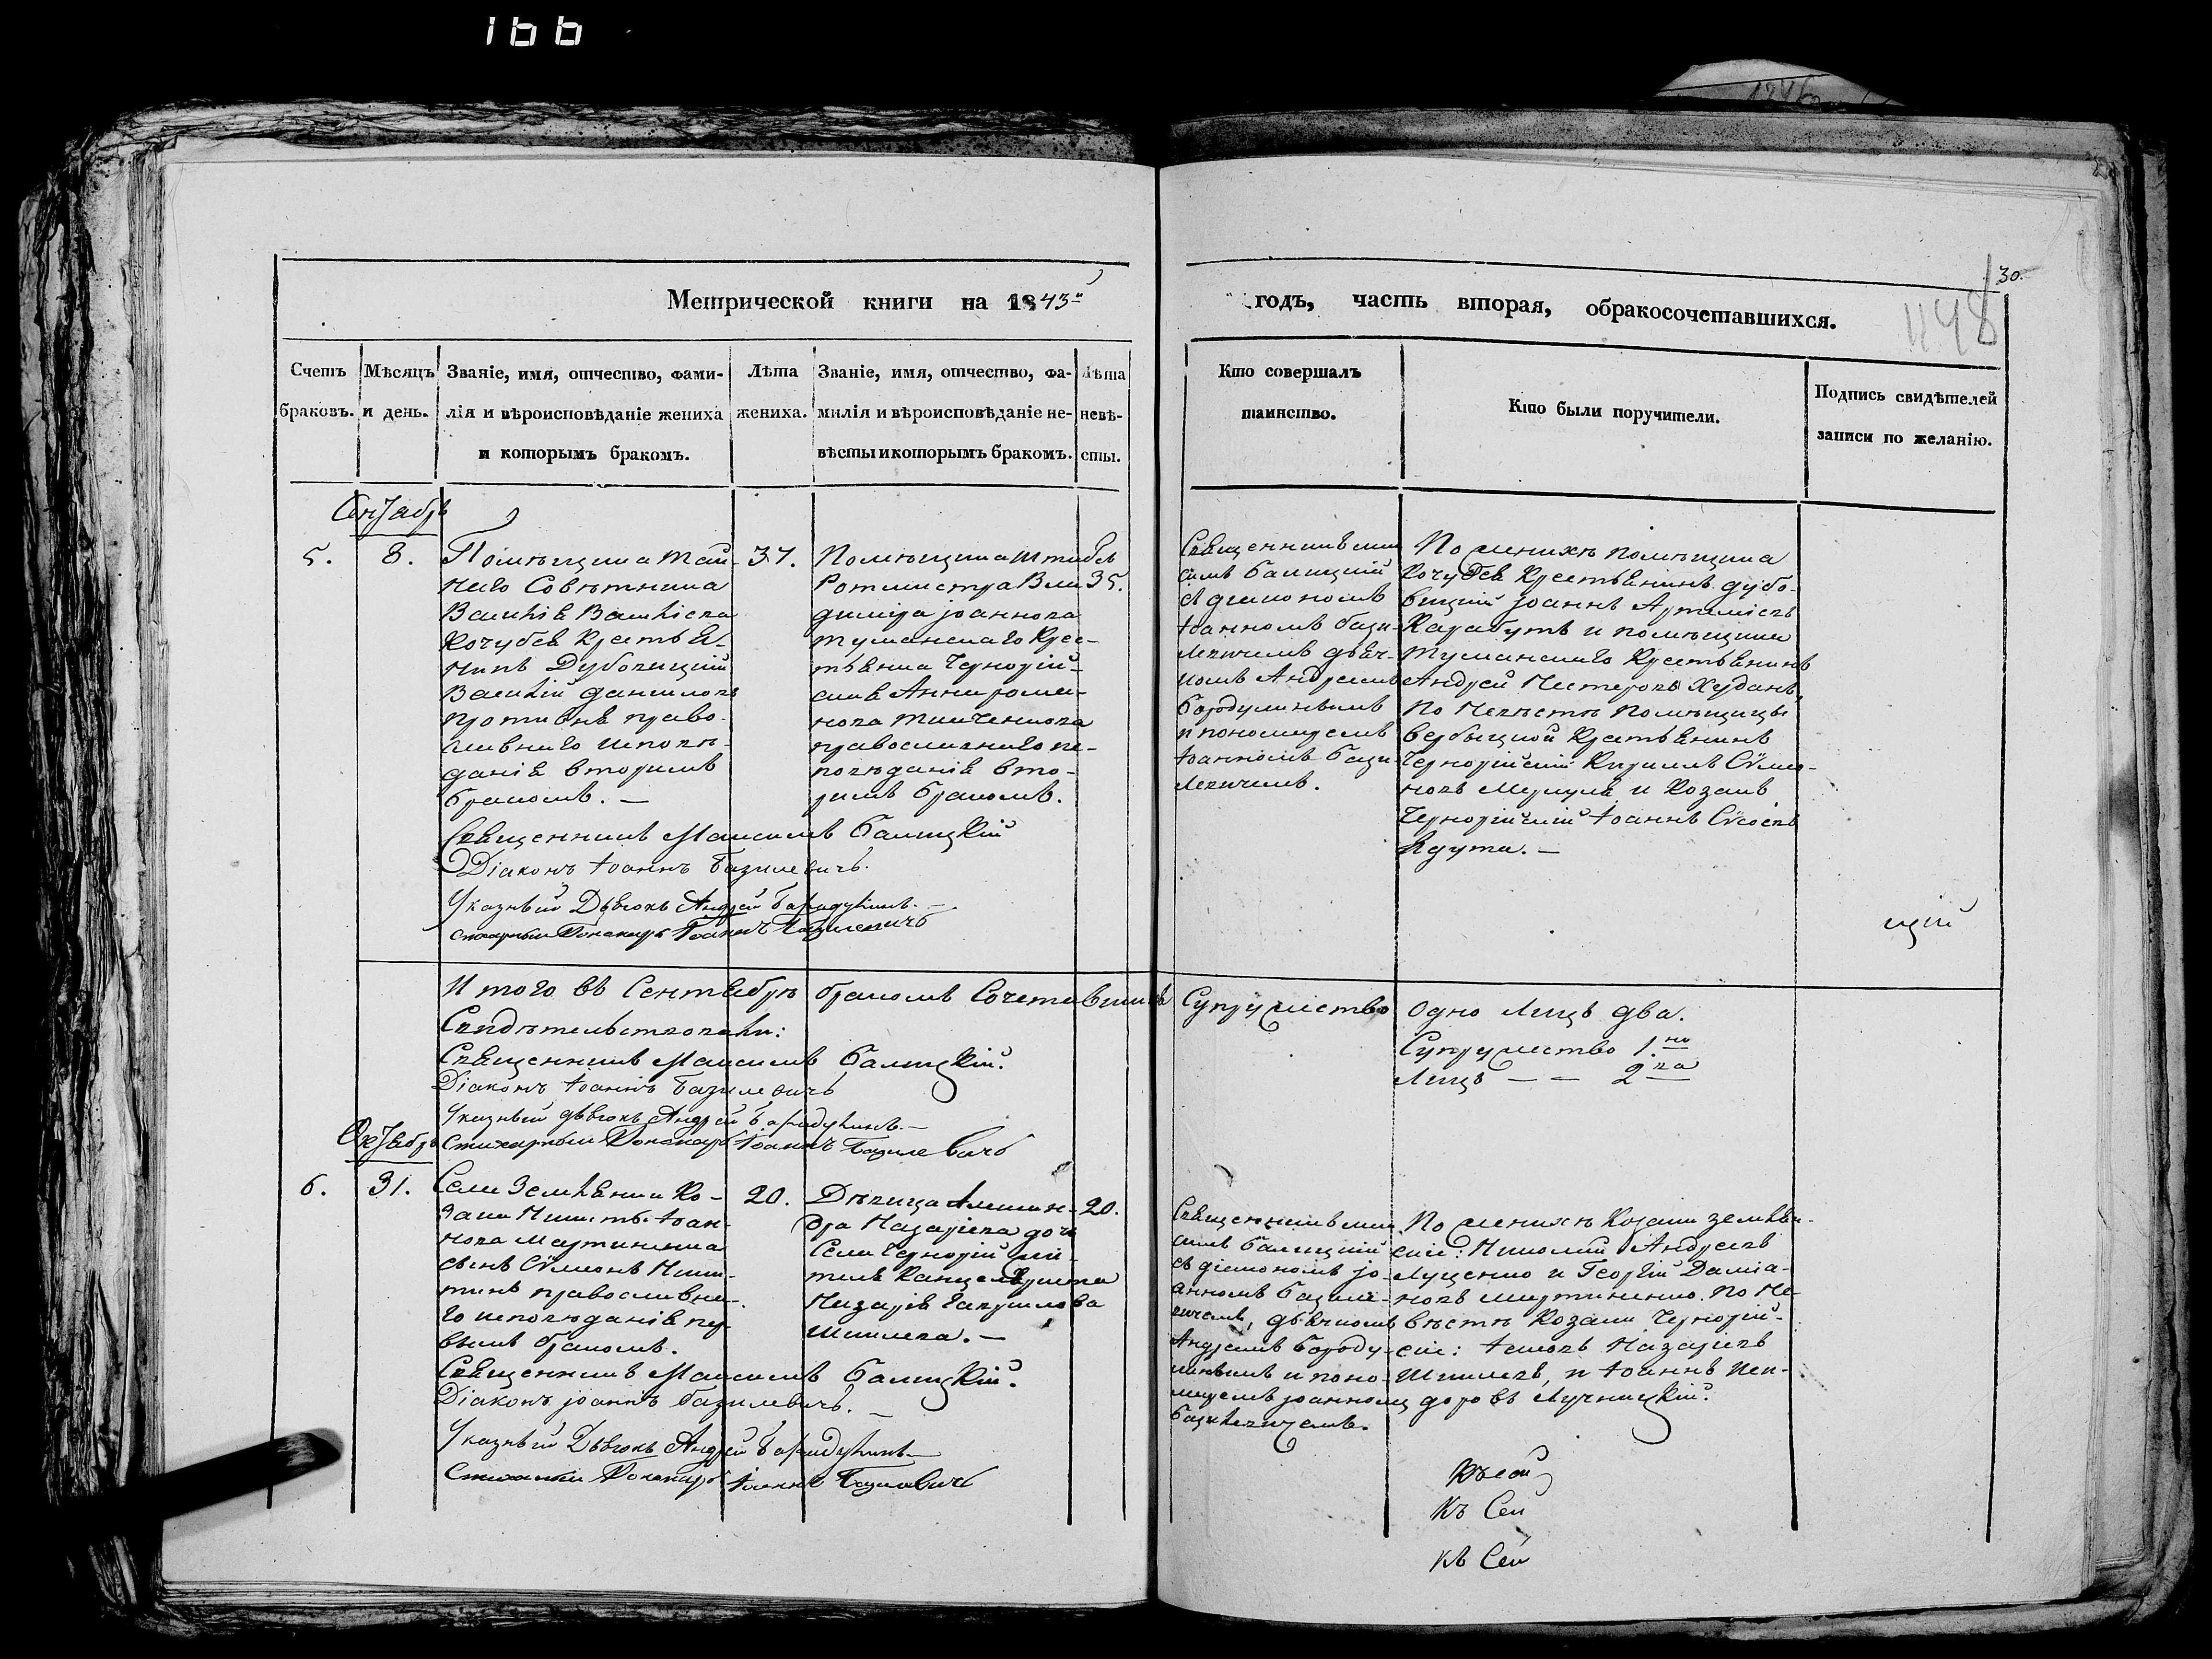 166
Метрической книги на 1843й
годъ, часть вторая, обракосочетавшихся.
30.
448
Счетъ браковъ.
Мѣсяцъ и день.
Званіе, имя, отчество, фами-
лія и вѣроисповѣданіе жениха
и которымъ бракомъ.
Лѣта
жениха.
Званіе, имя, отчество, фа-
милія и вѣроисповѣданіе не-
вѣсты и которымъ бракомъ.
Лѣта
невѣ-
сты.
Кто совершалъ
таинство.
Кто были поручители.
Подпись свидѣтелей
записи по желанію.
Сентябрь
5.
8.
Помѣщика Тай-
наго Совѣтника
Василія Василіева
Кочубея Крестья-
нинъ Дубовицкій
Василій Даниловъ
православ-
наго исповѣ-
данія вторымъ
бракомъ. —
37.
Помѣщика Штабсъ
Ротмистра Вла-
диміра Іоаннова
Туманскаго Крес-
тьянка Черторій-
ская Анна Рома-
нова
православнаго ис-
повѣданія вто-
рымъ бракомъ.
35.
Священникъ Мак-
симъ Балицкій
съ діакономъ
Іоанномъ Бази-
левичемъ дьяч-
комъ Андреемъ
Бородулинымъ
и пономаремъ
Іоанномъ Бази-
левичемъ.
По женихѣ помѣщика
Кочубея Крестьянинъ Дубо-
вицкій Іоаннъ Артеміевъ
Карабутъ и помѣщика
Туманскаго Крестьянинъ
Андрей Нестеровъ Худанъ,
По невѣстѣ помѣщицы
Вербыцкой Крестьянинъ
Черторійскій Кириллъ Сѵмео-
новъ и Козакъ
Черторійскій Іоаннъ
Священникъ Максимъ Балицкій
Діаконъ Іоаннъ Базилевичъ.
Указный Дьячокъ Андрей Бородулинъ. —
Стихарный Пономарь Іоаннъ Базилевичъ
щій
Итого въ Сентябрѣ бракомъ Сочетавшихся Супружество одно Лицъ два.
Свидѣтельствовали:
Супружество 1.но
Лицъ — — 2ва
Священникъ Максимъ Балицкій.
Діаконъ Іоаннъ Базилевичъ
Указный дьячокъ Андрей Бородулинъ. —
Стихарный Пономарь Іоаннъ Базилевичъ
Октябрь
6.
31.
Села Землянки Ко-
зака Никиты Іоан-
нова Мартиненка
сынъ Сѵмеонъ Ники-
тинъ православна-
го исповѣданія пер-
вымъ бракомъ.
20.
Дѣвица Алексан-
дра Назаріева дочь
Села Черторій жи-
теля Канцеляриста
Назарія Гаврилова
Шкилева. —
20.
Священникъ Мак-
симъ Балицкій
съ діакономъ Іо-
анномъ Базиле-
вичемъ, дьячкомъ
Андреемъ Бороду-
линымъ и поно-
маремъ Іоанномъ
Базилевичемъ.
По женихѣ Козаки Землян-
скіе: Николай Андреевъ
Луценко и Георгій Даміа-
новъ Мартиненко. По Не-
вѣстѣ Козаки Черторій-
скіе: Іаковъ Назаріевъ
Шкилевъ, и Іоаннъ Иси-
доровъ Лучницкій.
Священникъ Максимъ Балицкій.
Діаконъ Іоаннъ Базилевичъ. —
Указный Дьячокъ Андрей Бородулинъ —
Пономарь Іоаннъ Базилевичъ
Къ сей
Къ Сей
Къ Сей